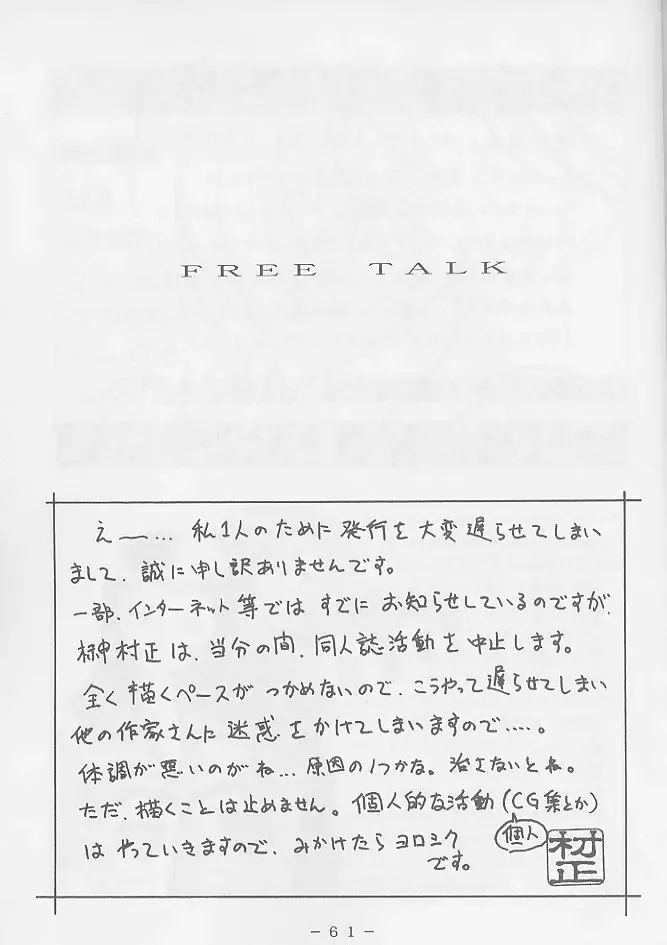 FREE TALK
え〜… 私1人のために発行を大変遅らせてしまい
まして、誠に申し訳ありませんです。
一部、インターネット等ではすでにお知らせしているのですが、
榊村正は、当分の間、同人誌活動を中止します。
全く描くペースがつかめないので、こうやって遅らせてしまい
他の作家さんに迷惑をかけてしまいますので‥‥。
体調が悪いのがね… 原因の1つかな。治さないとね。
ただ、描くことは止めません。個人的な活動(CG集とか)
はやっていきますので、みかけたらヨロシク
です。
個人
村正
－61－